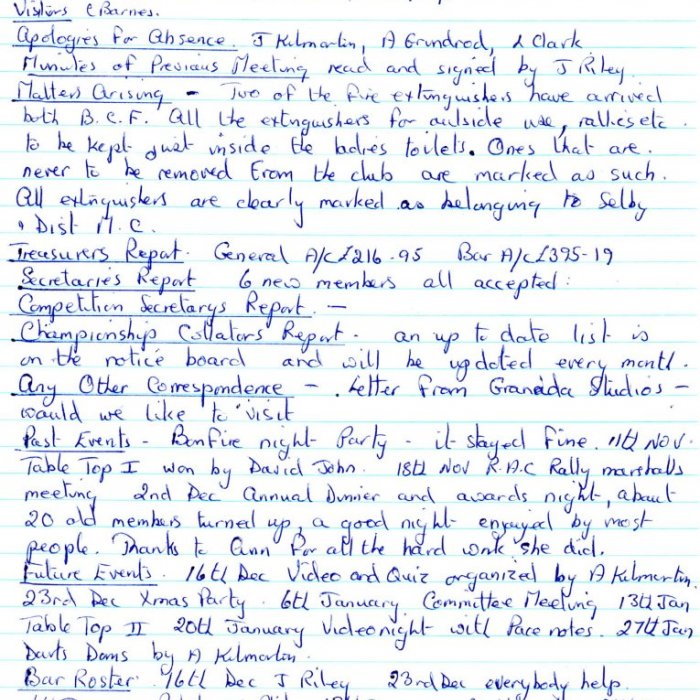 Visitors C Barnes.
Apologies for Absence. J Kilmartin, A Grundrod, L Clark
Minutes of Previous Meeting read and signed by J Riley.
Matters Arising - Two of the fire extinguishers have arrived
both B.C.F. All the extinguishers for outside use, rallies etc.
to be kept just inside the ladies toilets. Ones that are
never to be removed from the club are marked as such.
All extinguishers are clearly marked as belonging to Selby
& Dist M.C.
Treasurers Report. General A/C £216-95 Bar A/C £395-19
Secretaries Report 6 new members all accepted.
Competition Secretarys Report. -
Championship Collators Report. an up to date list is
on the notice board and will be updated every month.
Any Other Correspondence - Letter from Granada Studios -
would we like to visit
Past Events - Bonfire night Party - it stayed fine. 11th Nov.
Table Top I won by David John. 18th Nov R.A.C Rally marshalls
meeting 2nd Dec Annual Dinner and awards night, about
20 old members turned up, a good night enjoyed by most
people. Thanks to Ann for all the hard work she did.
Future Events. 16th Dec Video and Quiz organized by A Kilmartin.
23rd Dec Xmas Party. 6th January Committee Meeting 13th Jan
Table Top II 20th January Video night with Pace notes. 27th Jan
Darts Doms by A Kilmartin.
Bar Roster 16th Dec J Riley 23rd Dec everybody help.